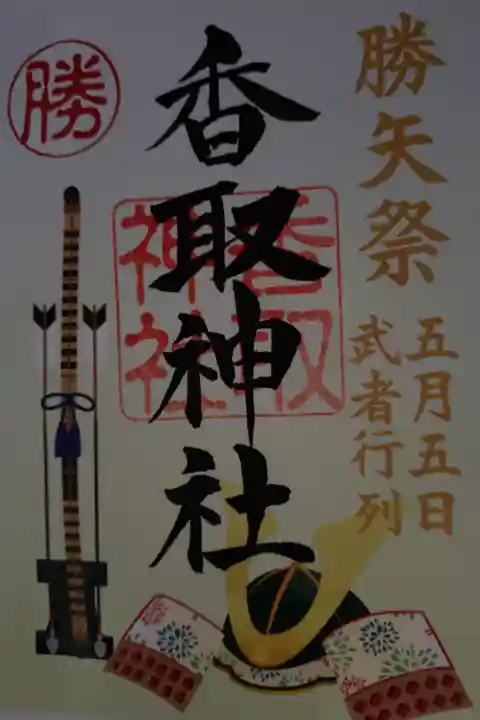 勝矢祭
五月五日
武者行列
香取神社
香取
神社
勝